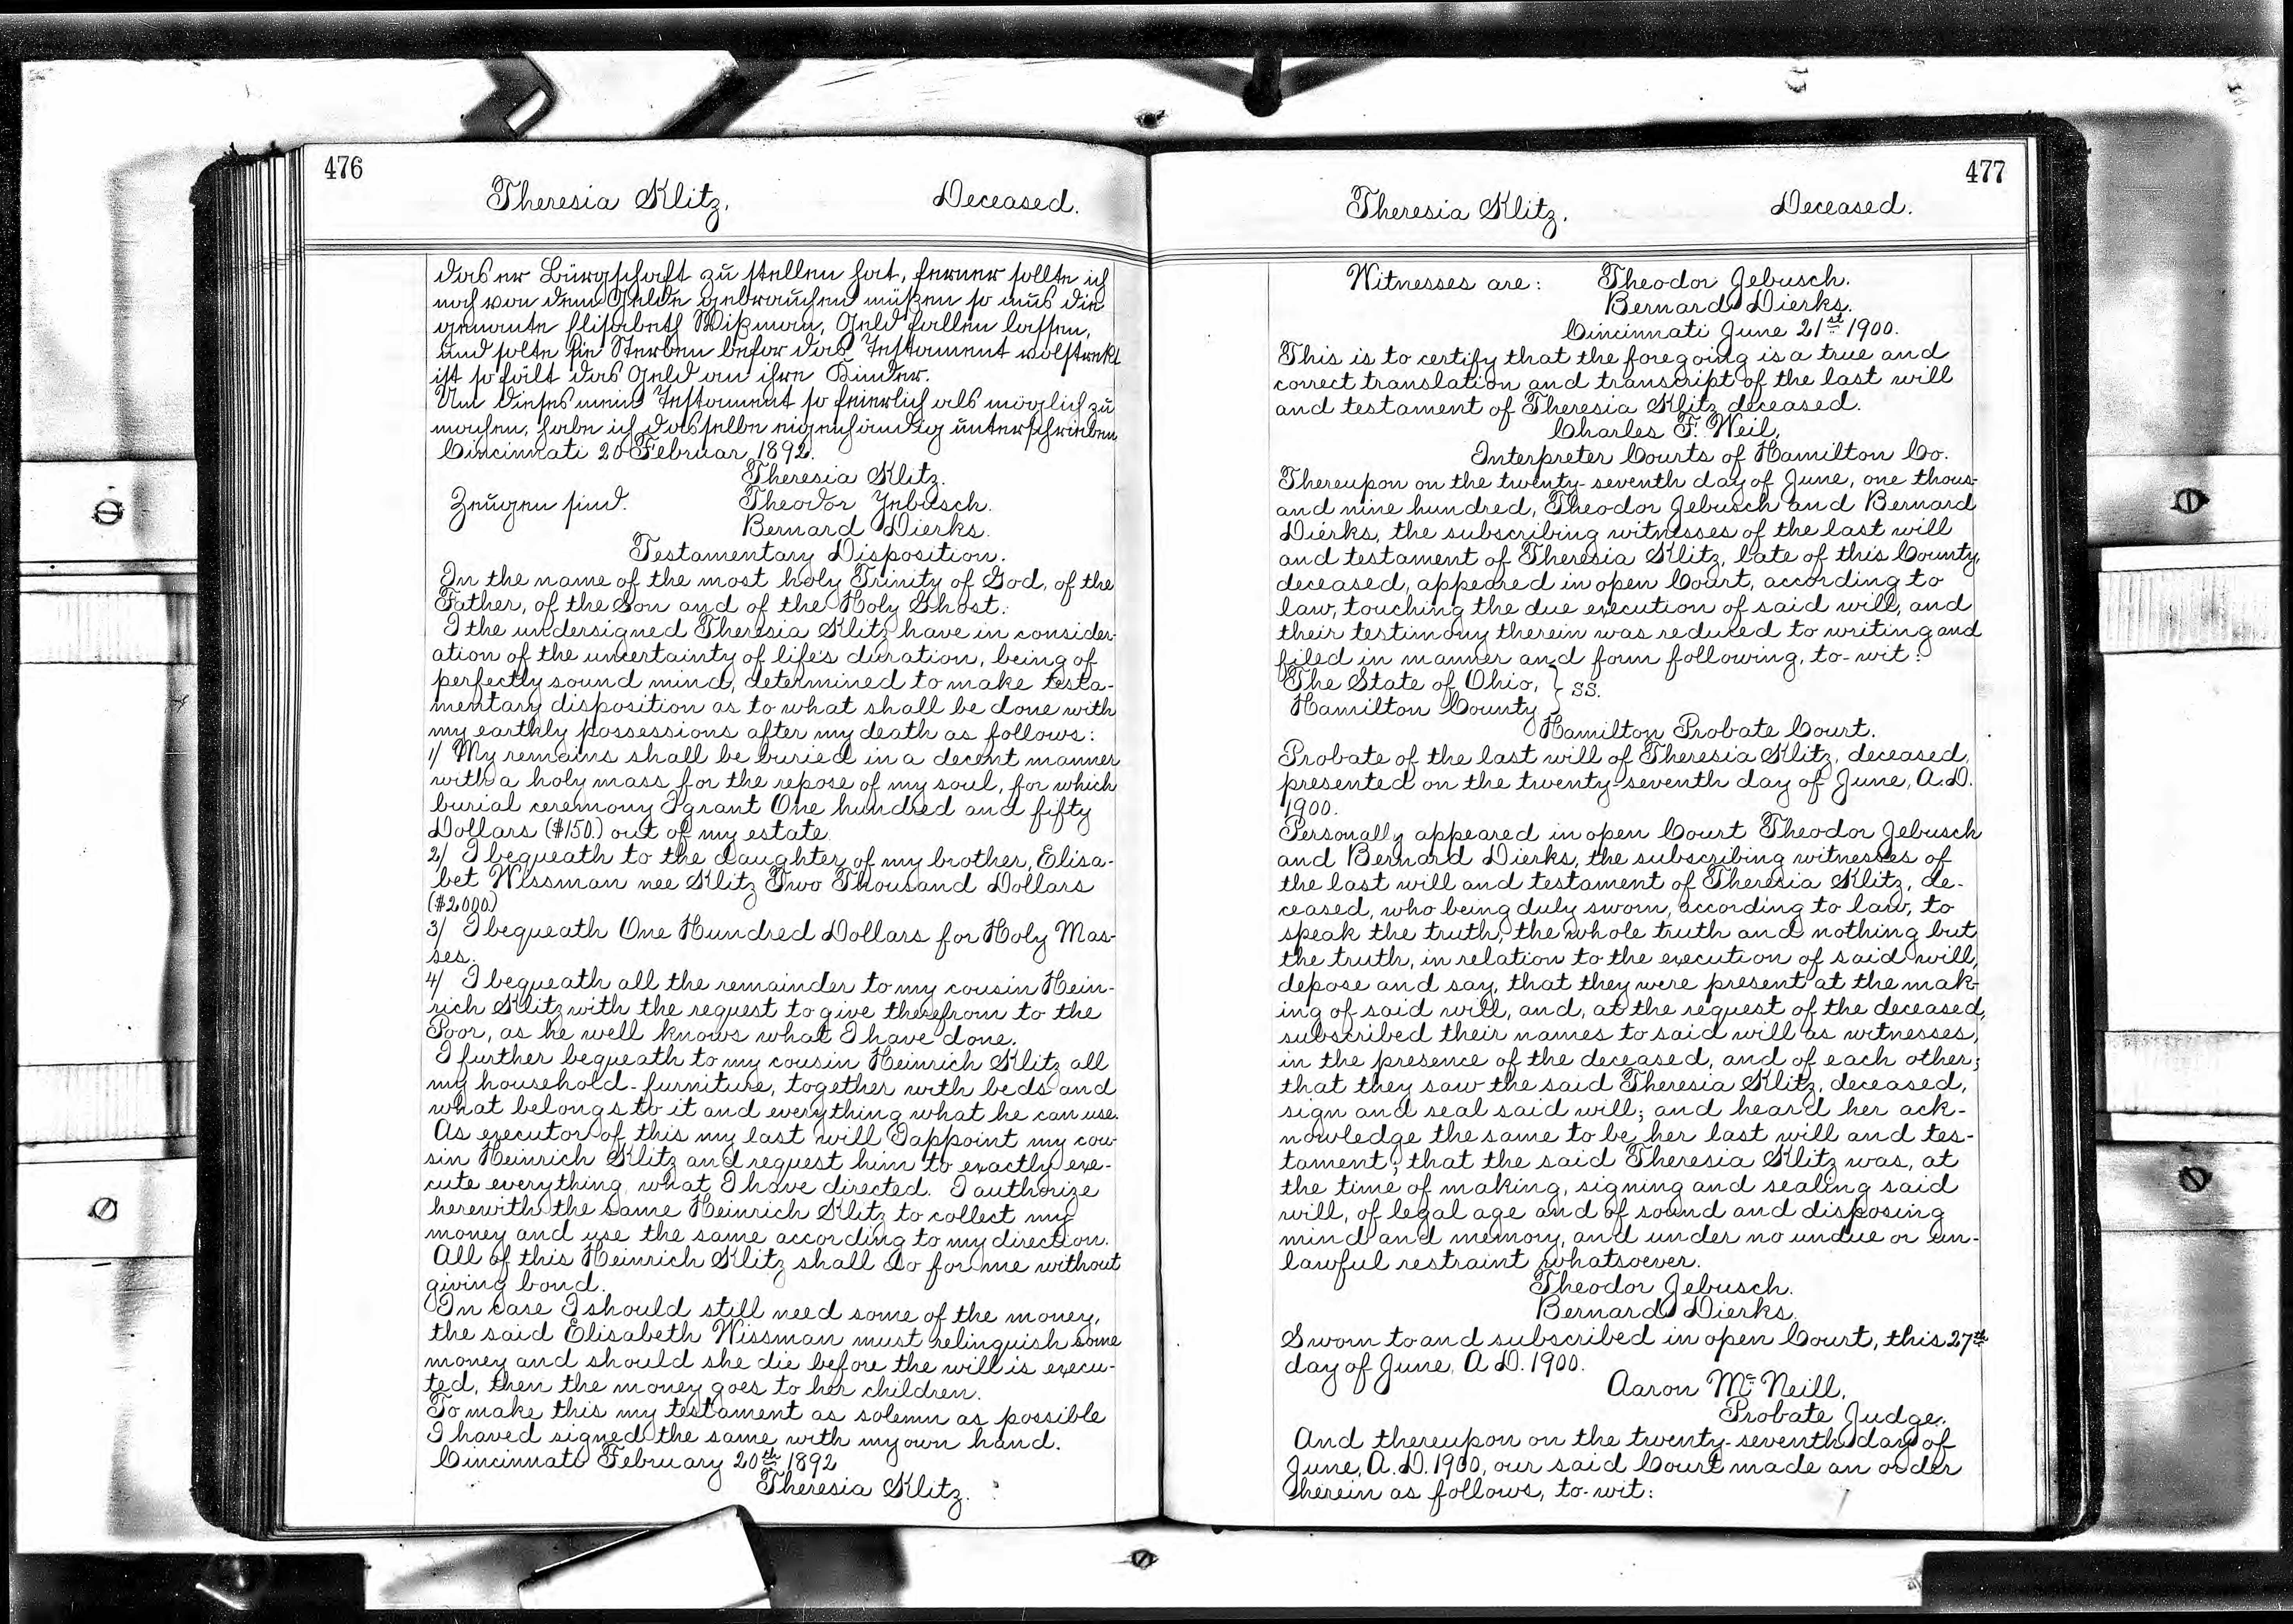 476
Theresia Klitz, Deceased.
das er Bürgschaft zu stellen hat, ferner sollte ich
noch von dem Gelde gebrauchen müßen so mus die
genante Elisabeth Wißman, Geld fallen lassen,
und solte sie Sterben befor das Testament volstrekt
ist so fält das Geld an ihre Kinder.
Um dieses mein Testament so feierlich als möglich zu
machen, habe ich dasselbe eigenhändig unterschrieben
Cincinnati 20 Februar 1892.
Theresia Klitz.
Zeugen sind. Theodor Jebusch.
Bernard Dierks.
Testamentary Disposition.
In the name of the most holy Trinity of God, of the
Father, of the Son and of the Holy Ghost.
I the undersigned Theresia Klitz have in consider-
ation of the uncertainty of life's duration, being of
perfectly sound mind, determined to make testa-
mentary disposition as to what shall be done with
my earthly possessions after my death as follows:
1/ My remains shall be buried in a decent manner
with a holy mass for the repose of my soul, for which
burial ceremony I grant One hundred and fifty
Dollars ($150.) out of my estate.
2/ I bequeath to the daughter of my brother, Elisa-
bet Wissman nee Klitz Two Thousand Dollars
($2000)
3/ I bequeath One Hundred Dollars for Holy Mas-
ses.
4/ I bequeath all the remainder to my cousin Hein-
rich Klitz with the request to give therefrom to the
Poor, as he well knows what I have done.
I further bequeath to my cousin Heinrich Klitz all
my household-furniture, together with beds and
what belongs to it and everything what he can use.
As executor of this my last will I appoint my cou-
sin Heinrich Klitz and request him to exactly exe-
cute everything what I have directed. I authorize
herewith the same Heinrich Klitz to collect my
money and use the same according to my direction.
All of this Heinrich Klitz shall do for me without
giving bond.
In case I should still need some of the money,
the said Elisabeth Wissman must relinquish some
money and should she die before the will is execu-
ted, then the money goes to her children.
To make this my testament as solemn as possible
I haved signed the same with my own hand.
Cincinnati February 20th 1892
Theresia Klitz.
477
Theresia Klitz, Deceased.
Witnesses are: Theodor Jebusch.
Bernard Dierks.
Cincinnati June 21st 1900.
This is to certify that the foregoing is a true and
correct translation and transcript of the last will
and testament of Theresia Klitz deceased.
Charles F. Weil,
Interpreter Courts of Hamilton Co.
Thereupon on the twenty-seventh day of June, one thous-
and nine hundred, Theodor Jebusch and Bernard
Dierks, the subscribing witnesses of the last will
and testament of Theresia Klitz, late of this County,
deceased, appeared in open Court, according to
law, touching the due execution of said will, and
their testimony therein was reduced to writing and
filed in manner and form following, to-wit:
The State of Ohio, } ss.
Hamilton County
Hamilton Probate Court.
Probate of the last will of Theresia Klitz, deceased,
presented on the twenty-seventh day of June, A.D.
1900.
Personally appeared in open Court Theodor Jebusch
and Bernard Dierks, the subscribing witnesses of
the last will and testament of Theresia Klitz, de-
ceased, who being duly sworn, according to law, to
speak the truth, the whole truth and nothing but
the truth, in relation to the execution of said will,
depose and say, that they were present at the mak-
ing of said will, and, at the request of the deceased,
subscribed their names to said will as witnesses,
in the presence of the deceased, and of each other;
that they saw the said Theresia Klitz, deceased,
sign and seal said will; and heard her ack-
nowledge the same to be her last will and tes-
tament; that the said Theresia Klitz was, at
the time of making, signing and sealing said
will, of legal age and of sound and disposing
mind and memory, and under no undue or un-
lawful restraint whatsoever.
Theodor Jebusch.
Bernard Dierks.
Sworn to and subscribed in open Court, this 27th
day of June, A.D. 1900.
Aaron McNeill,
Probate Judge.
And thereupon on the twenty-seventh day of
June, A.D. 1900, our said Court made an order
herein as follows, to-wit: